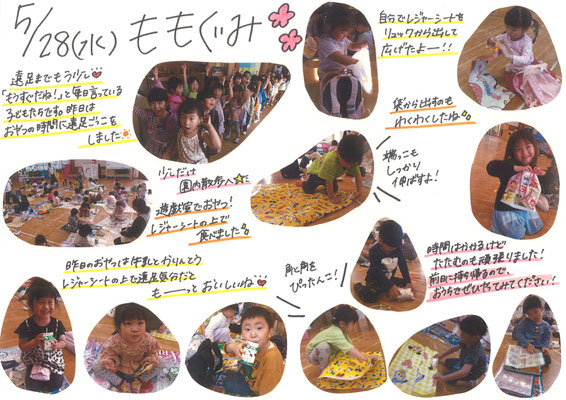 5/28(水) ももぐみ
遠足までもう少し
「もうすぐだね!」と毎日言っている
子どもたちです。昨日は
おやつの時間に遠足ごっこを
しました
自分でレジャーシートを
リュックから出して
広げたよー!!
袋から出すのも
わくわくしたね
端っこも
しっかり
伸ばすよ!
少しだけ
園内散歩へ
遊戯室でおやつ!
レジャーシートの上で
食べました
昨日のおやつは牛乳とかりんとう
レジャーシートの上で遠足気分だと
もーーっとおいしいね
角と角を
ぴったんこ!
時間はかかるけど
たたむのも頑張りました!
前日に持ち帰るので、
おうちでぜひやってみてください!